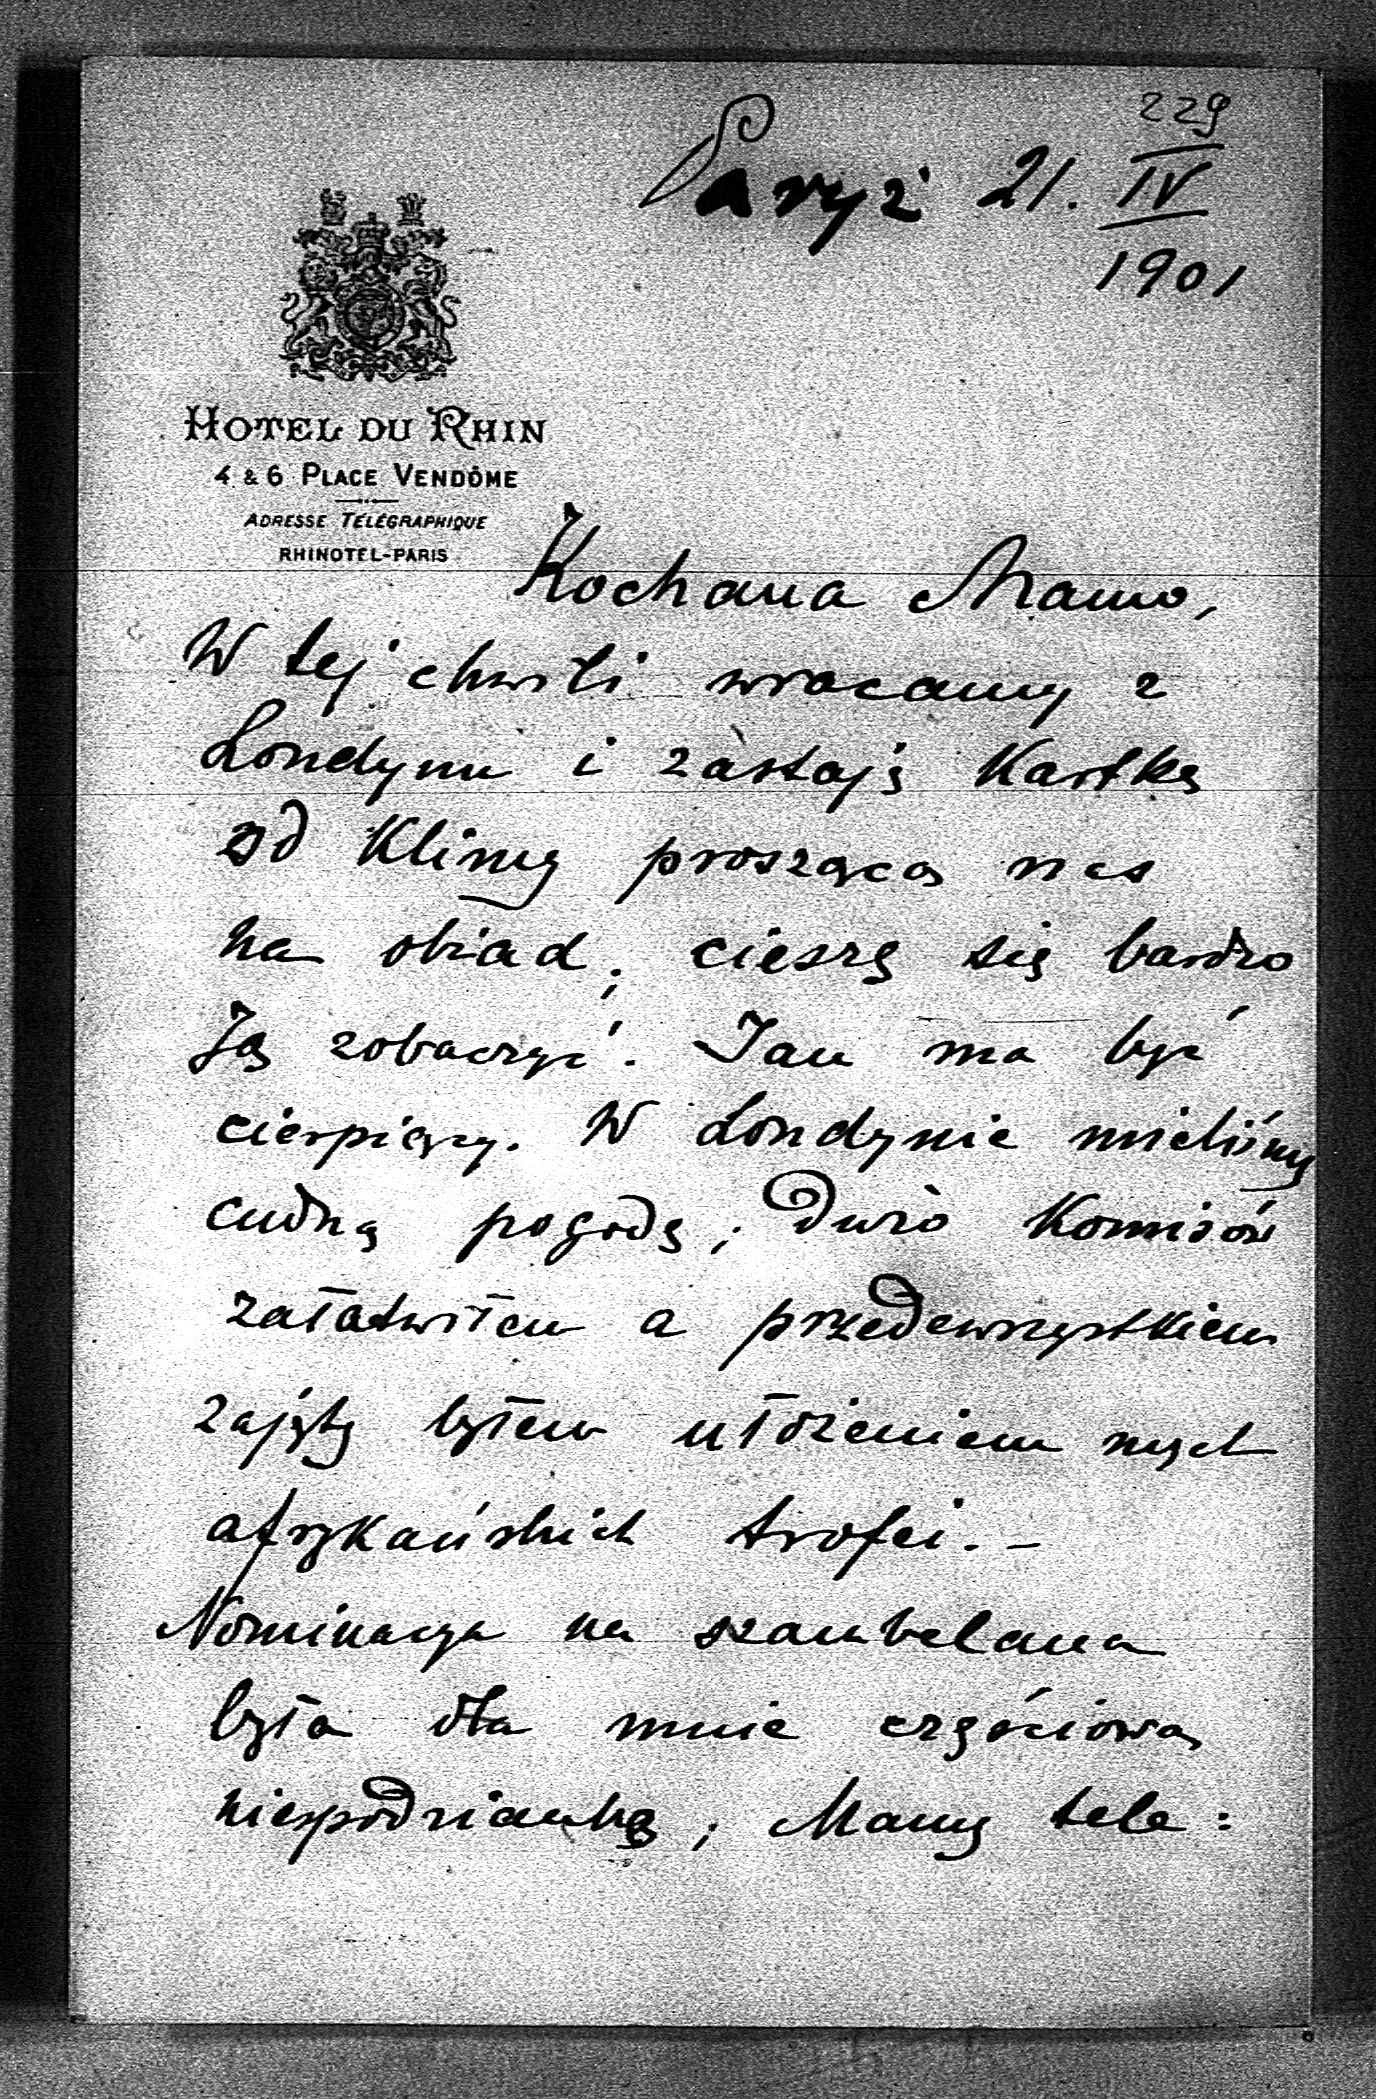 229
Paryż 21. IV
1901
HOTEL DU RHIN
4 & 6 PLACE VENDÔME
ADRESSE TÉLÉGRAPHIQUE
RHINOTEL-PARIS
Kochana Mamo,
W tej chwili wracamy z
Londynu i zastaję kartkę
od Klimy proszącą nas
na obiad; cieszę się bardzo
Ją zobaczyć. Jan ma być
cierpiący. W Londynie mieliśmy
cudną pogodę; dużo komisów
załatwiłem a przedewszystkiem
zajęty byłem ułożeniem mych
afrykańskich trofei. –
Nominacya na szambelana
była dla mnie częściową
niespodzianką; Mamy tele: